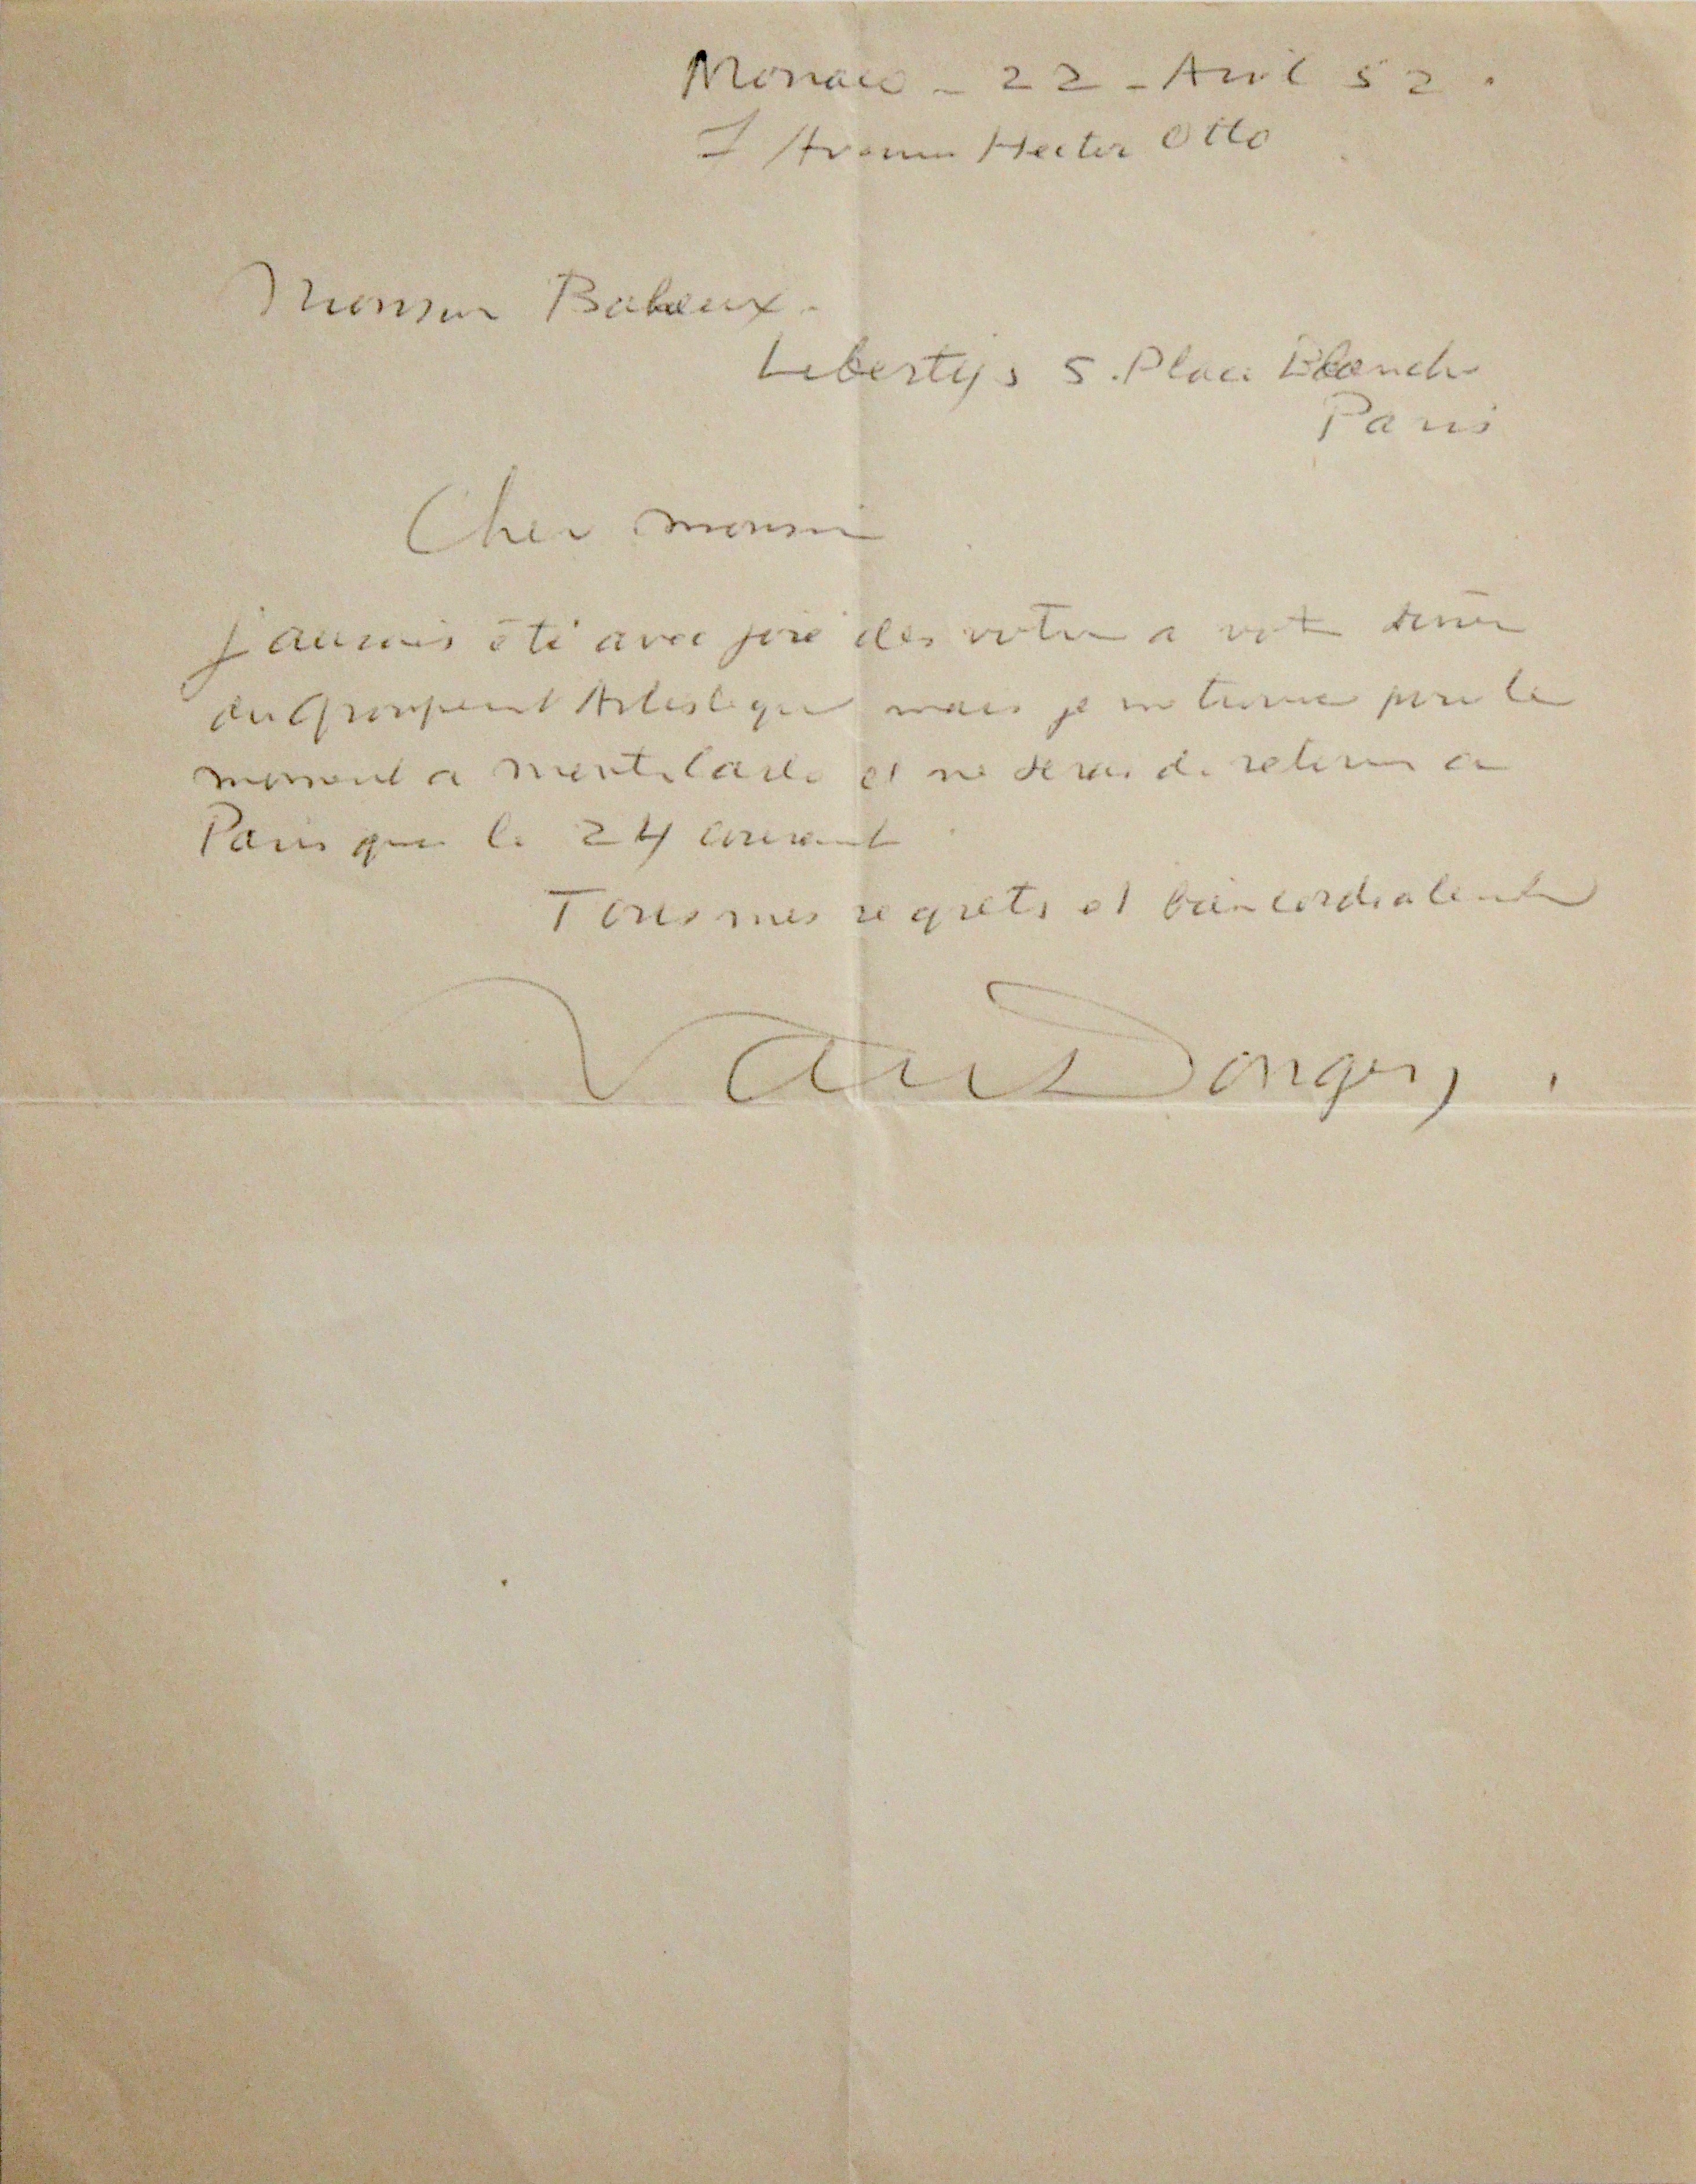 Monaco - 22 - Avril 52.
1 Avenue Hector Otto
Monsieur Babeux.
Liberty's 5. Place Blanche
Paris
Cher monsieur
j aurais été avec joie des votre a votre diner
du Groupement Artistique mais je me trouve pour le
moment a Monte Carlo et ne serai de retour a
Paris que le 24 courant
Tous mes regrets et bien cordialement
Van Dongen.